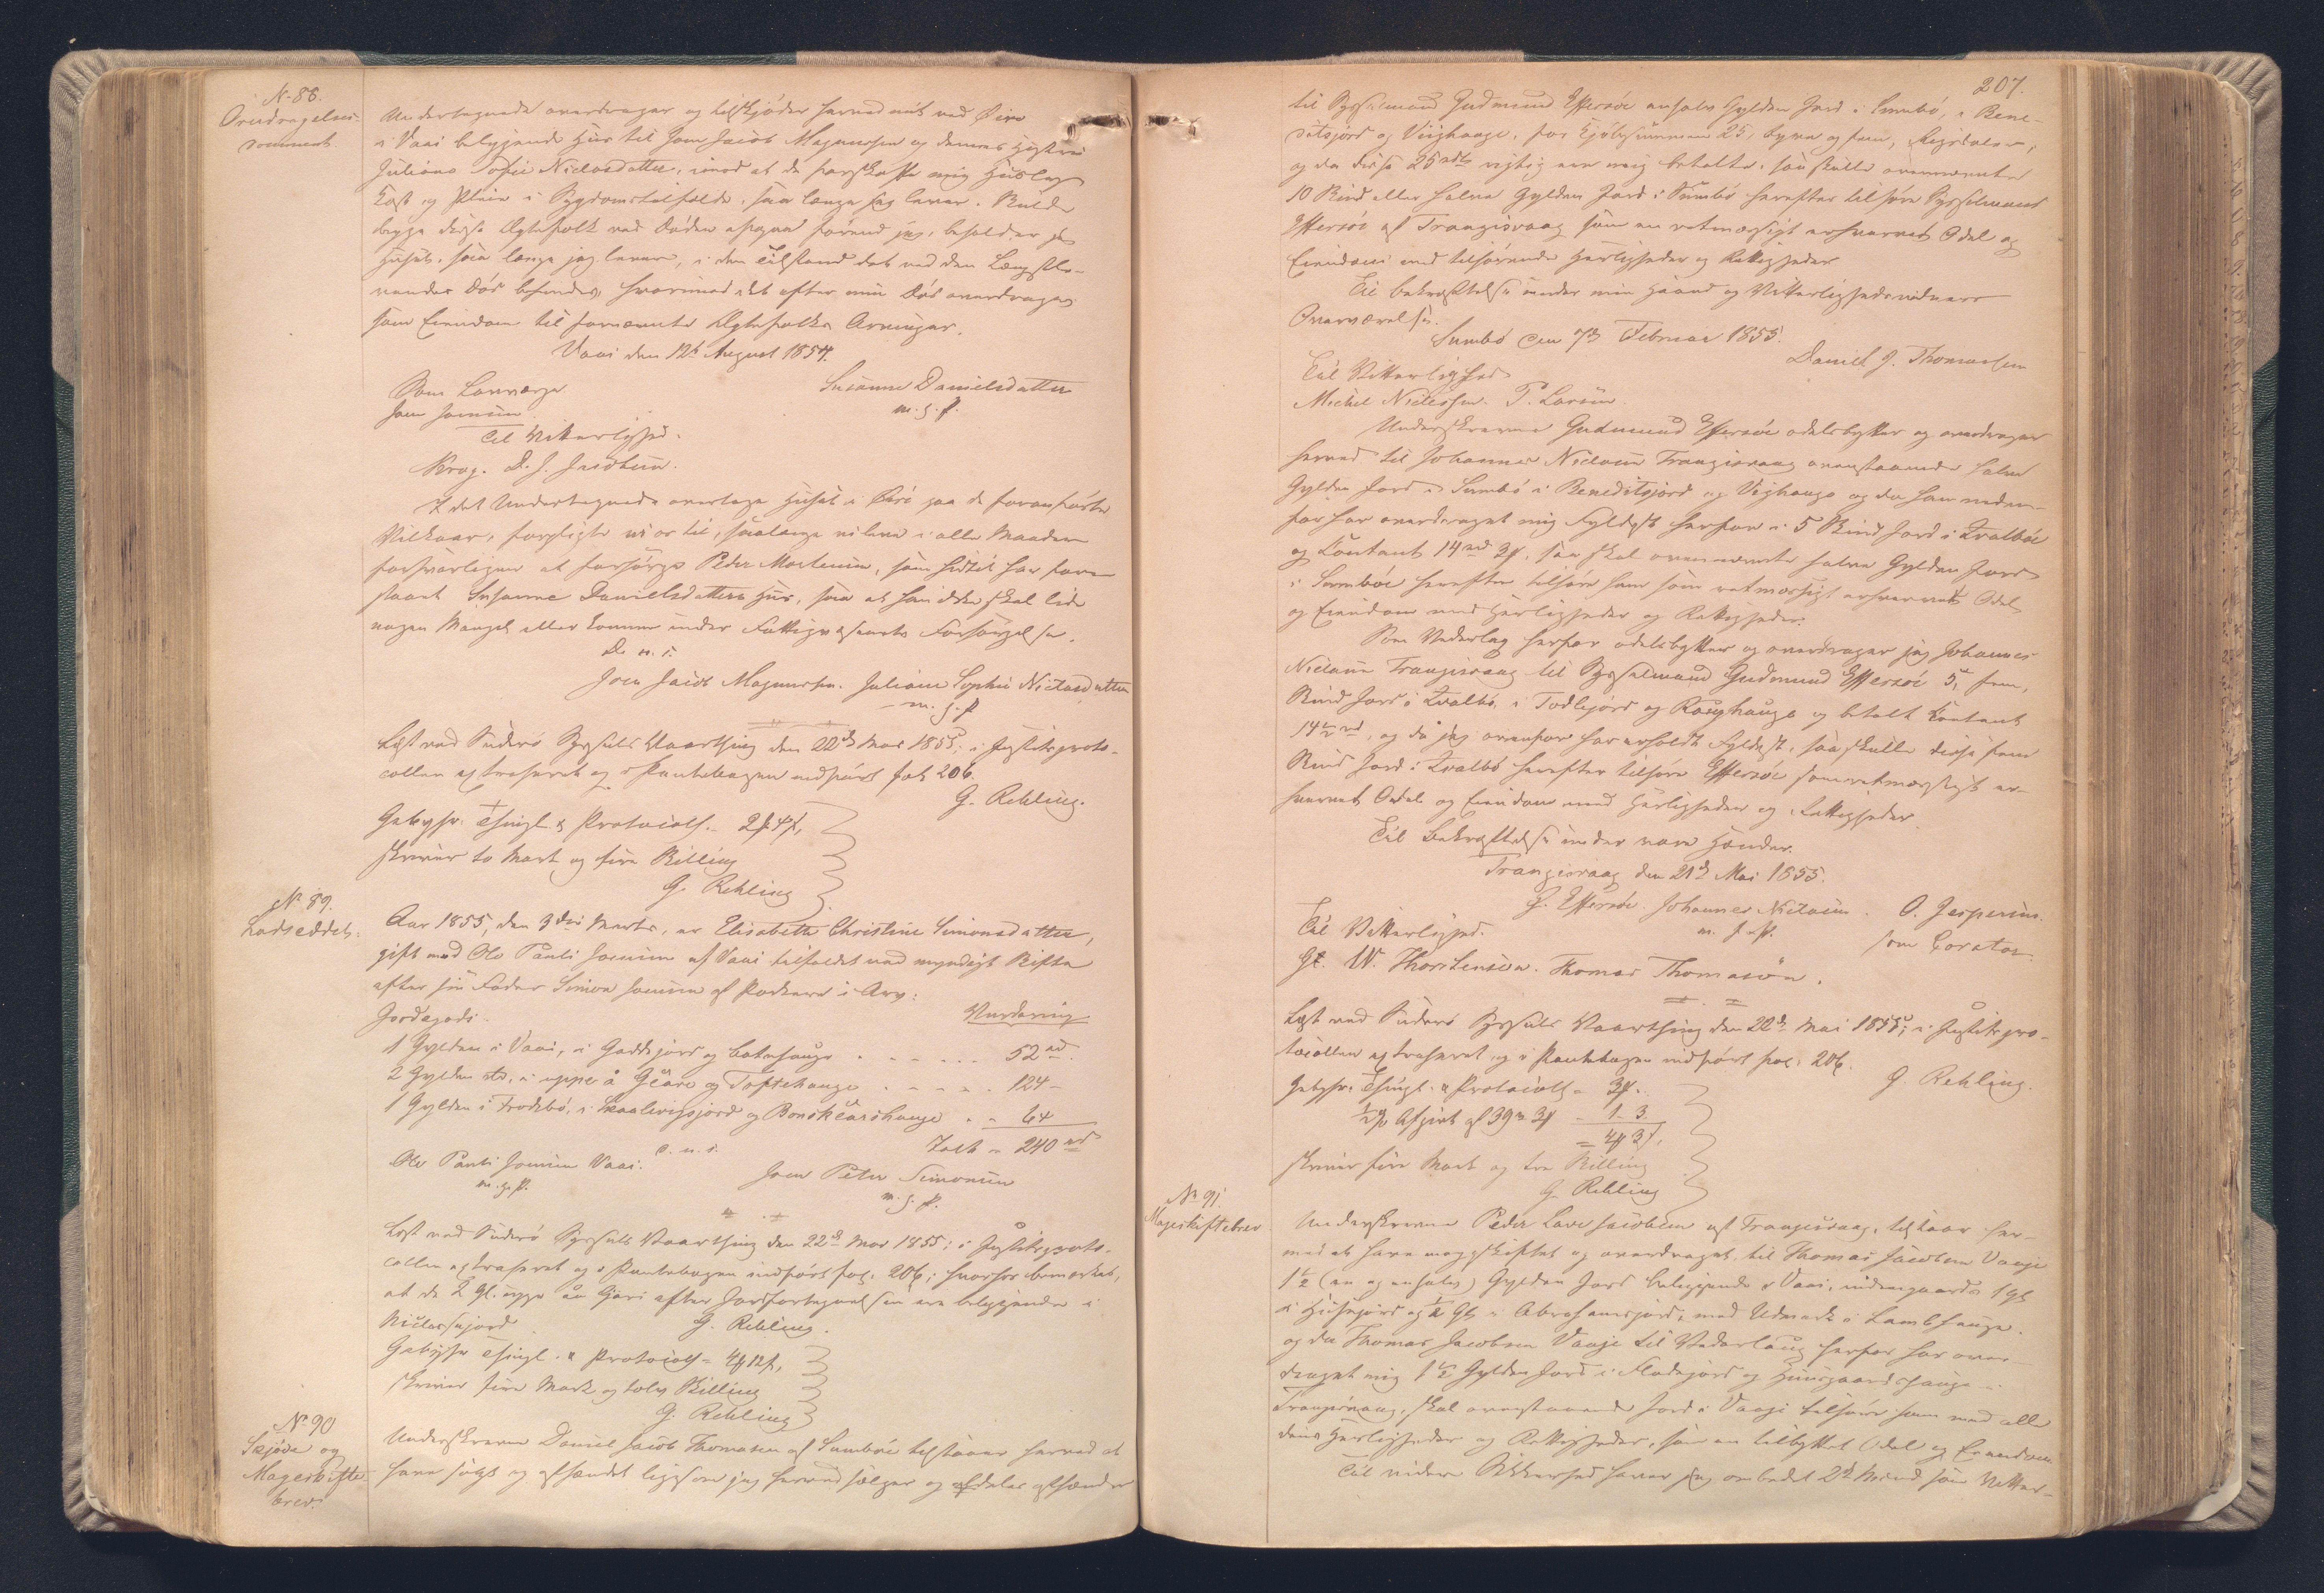 N. 88.
Overdragelses-
document.
Undertegnede overdrager og tilskjøder herved mit ved Øire
i Vaai beliggende Huus til Joen Jacob Magnussen og dennes Hustru
Juliane Sofie Niclasdatter, imod at de forskaffe mig Huuslag
Kost og Pleie i Sygdomstilfælde, saa længe jeg lever. Skulde
begge disse Ægtefolk ved Døden afgaae førend jeg, beholder jeg
Huset, saa længe jeg lever, i den Tilstand det ved den Længstle-
vendes Død befindes, hvorimod det efter min Død overdrages
som Eiendom til fornævnte Ægtefolks Arvinger.
Vaai den 12te August 1854.
Som Laugværge
Joen Joensen.
Susanne Danielsdatter
m. f. P.
Til Vitterlighed.
Krog. D. J. Jacobsen.
I det Undertegnede overtage Huset i Øire paa de foranførte
Vilkaar, forpligte vi os til, saalænge vi leve i alle Maader
forsvarligen at forsørge Peder Mortensen, som hidtil har fore-
staaet Susanne Danielsdatters Huus, saa at han ikke skal lide
nogen Mangel eller komme under Fattigvæsenets Forsørgelse.
D. u. s.
Joen Jacob Magnussen. Juliane Sophie Niclasdatter
m. f. P.
Læst ved Suderø Syssels Vaarthing den 22de Mai 1855; i Justitsproto-
collen extraheret og i Pantebogen indført fol. 206.
G. Rehling.
Gebyhr: Thingl. & Protocoll. - 2 ß 4 ß,
skriver to Mark og fire Skilling
G. Rehling
N. 89.
Lodseddel.
Aar 1855, den 3die Marts, er Elisabeth Christine Simonsdatter,
gift med Ole Pauli Joensen af Vaai tilfaldet ved myndigt Skifte
efter sin Fader Simon Joensen af Porkere i Arv:
Jordegods.
Vurdering
1 Gylden i Vaai, i Gaddejord og Botnhauge . . . . . 52 rd.
2 Gylden std., i uppe å Gjäre og Toftehauge . . . . . 124 -
1 Gylden i Frodebø, i Skaalevigsjord og Bonskleivshauge . . 64
Ialt = 240 rd
D. u. s.
Ole Pauli Joensen Vaai.
m. f. P.
Joen Peter Simonsen
m. f. P.
Læst ved Suderø Syssels Vaarthing den 22de Mai 1855; i Justitsproto-
collen extraheret og i Pantebogen indført fol. 206; hvorhos bemærkes,
at de 2 Gl. uppe aa Gjäri efter Jordfortegnelsen ere beliggende i
Niclassajord
G. Rehling.
Gebyhr Thingl. & Protocoll = 4 ß 12 ß,
skriver fire Mark og tolv Skilling
G. Rehling
N. 90
Skjøde og
Mageskifte-
brev.
Underskrevne Daniel Jacob Thomasen af Sumbøe tilstaaer herved at
have solgt og afhændet ligesom jeg herved sælger og aldeles afhænder
207.
til Sysselmand Gudmund Effersøe enhalv Gylden Jord i Sumbø, i Bene-
ditsjord og Viighauge, for Kjøbesummen 25, tyve og fem, Rigsdaler,
og da disse 25 rdlr rigtig ere mig betalte, saa skulle ovennævnte
10 Skind eller halve Gylden Jord i Sumbø herefter tilhøre Sysselmand
Effersøe af Trangisvaag som en retmæssigt erhvervet Odel og
Eiendom med tilhørende Herligheder og Rettigheder
Til Bekræftelse under min Haand og Vitterlighedsvidners
Overværelse.
Sumbø den 7de Februar 1855.
Daniel J. Thomassen
Til Vitterlighed
Michel Niclassen. P. Larsen.
Underskrevne Gudmund Effersøe odelsbytter og overdrager
herved til Johannes Niclasen Trangisvaag ovenstaaende halve
Gylden Jord i Sumbø i Beneditsjord og Vighauge og da han neden-
for har overdraget mig Fyldest herfor i 5 Skind Jord i Kvalbøe
og Contant 14 rd 3 ß, saa skal ovennævnte halve Gylden Jord
i Sumbøe herefter tilhøre ham som retmæssigt erhvervet Odel
og Eiendom med Herligheder og Rettigheder.
Som Vederlag herfor odelsbytter og overdrager jeg Johannes
Niclasen Trangisvaag til Sysselmand Gudmund Effersøe 5, fem,
Skind Jord i Kvalbø, i Todlsjord og Rossghauge og betalt Contant
14½ rd, og da jeg ovenfor har erholdt Fyldest, saa skulle disse fem
Skind Jord i Kvalbø herefter tilhøre Effersøe som retmæssigt er-
hvervet Odel og Eiendom med Herligheder og Rettigheder
Til Bekræftelse under vore Hænder.
Trangisvaag den 21de Mai 1855.
G. Effersøe. Johannes Niclasen. O. Jespersen.
m. f. P.
som Corator.
Til Vitterlighed.
Gt. W. Thorstensen. Thomas Thomasen.
Læst ved Suderø Syssels Vaarthing den 22de Mai 1855; i Justitspro-
tocollen extraheret og i Pantebogen indført fol. 206.
G. Rehling.
Gebyhr. Thingl. & Protocoll = 3 ß.
½ % Afgivt af 39 rd 3 ß - 1 - 3
= 4 ß 3 ß,
skriver fire Mark og tre Skilling
G. Rehling
No. 91.
Mageskiftebrev
Underskrevne Peder Lave Jacobsen af Trangisvaag, tilstaar her-
med at have mageskiftet og overdraget til Thomas Jacobsen Vaaje
1½ (en og enhalv) Gylden Jord beliggende i Vaai, indengaards 1 Gl
i Huusejord og ½ Gl i Abrahamsjord, med Udmark i Lambhauge.
og da Thomas Jacobsen Vaaje til Vederlaug herfor har over-
draget mig 1½ Gylden Jord i Flodejord og Huusgaardshauge
Trangisvaag, skal ovenstaaende Jord i Vaaje tilhøre ham med alle
dens Herligheder og Rettigheder, som en tilbyttet Odel og Eiendom
Til videre Sikkerhed haver jeg ombedet 2de Mænd som Vitter-